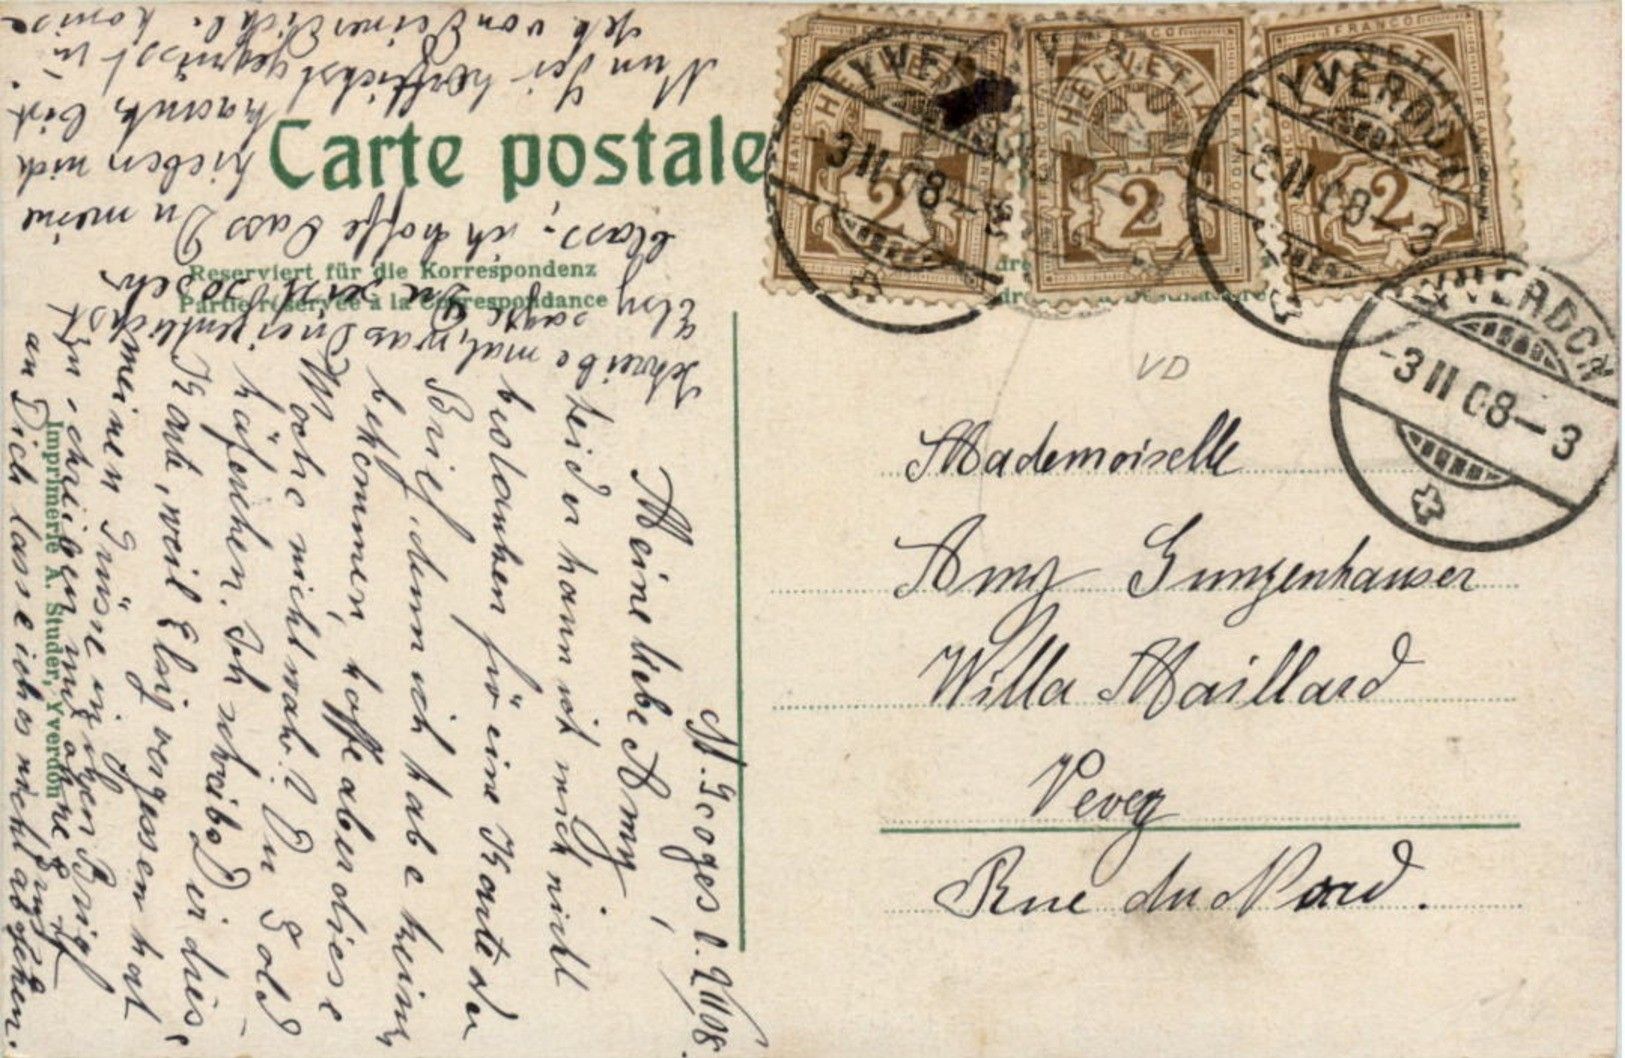 Carte postale
Reserviert für die Korrespondenz
Partie réservée à la Correspondance
HELVETIA
FRANCO
2
HELVETIA
FRANCO
2
HELVETIA
FRANCO
2
YVERDON
-3 II 08-3
YVERDON
-3 II 08-3
YVERDON
-3 II 08-3
VD
Mademoiselle
Amy Gunzenhauser
Willa Maillard
Vevey
Rue du Nord.
Imprimerie A. Studer, Yverdon
St. Georges d. 2 II 08.
Meine liebe Amy,
Leider kann ich mich nicht
bedanken für eine Karte oder
Brief, denn ich habe keine
bekommen, hoffe aber diese
Woche nicht wahr? Du Gold-
käferchen. Ich schreibe Dir diese
Karte, weil Elsy vergessen hat
meinen Grüsse in ihren Brief
zu schreiben und ohne Gruss
an Dich lasse ich es nicht abgehen.
Schreibe mal, was Du eigentlich
Elsy sagte
blass, ich hoffe dass Du meine
Lieben mich
Nun sei herzlichst gegrüsst u.
gek. von Deiner